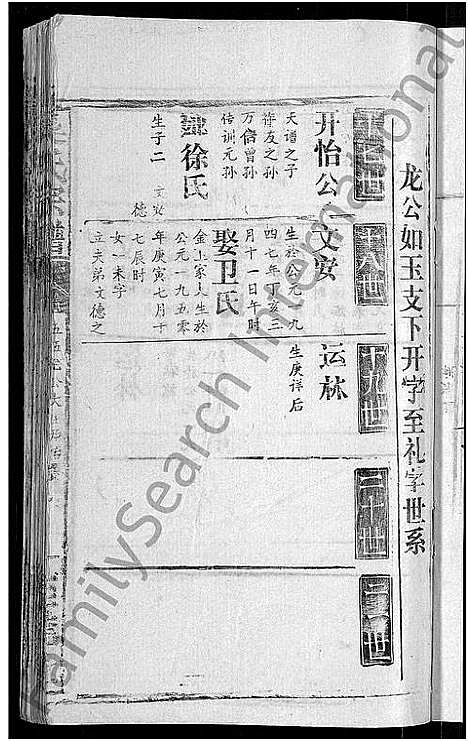 龙公如玉支下开字至礼字世系
十七世
开怡公
天谱之子
祚友之孙
万信曾孙
传训元孙
徐氏
生子二 文安
德
十八世
文安
生於公元一九
四七年丁亥三
月十一日午时
娶卫氏
金上家人生於
公元一九五零
年庚寅七月十
七辰时
女一未字
立夫弟文德之
十九世
运林
生庚详后
二十世
FamilySearch International